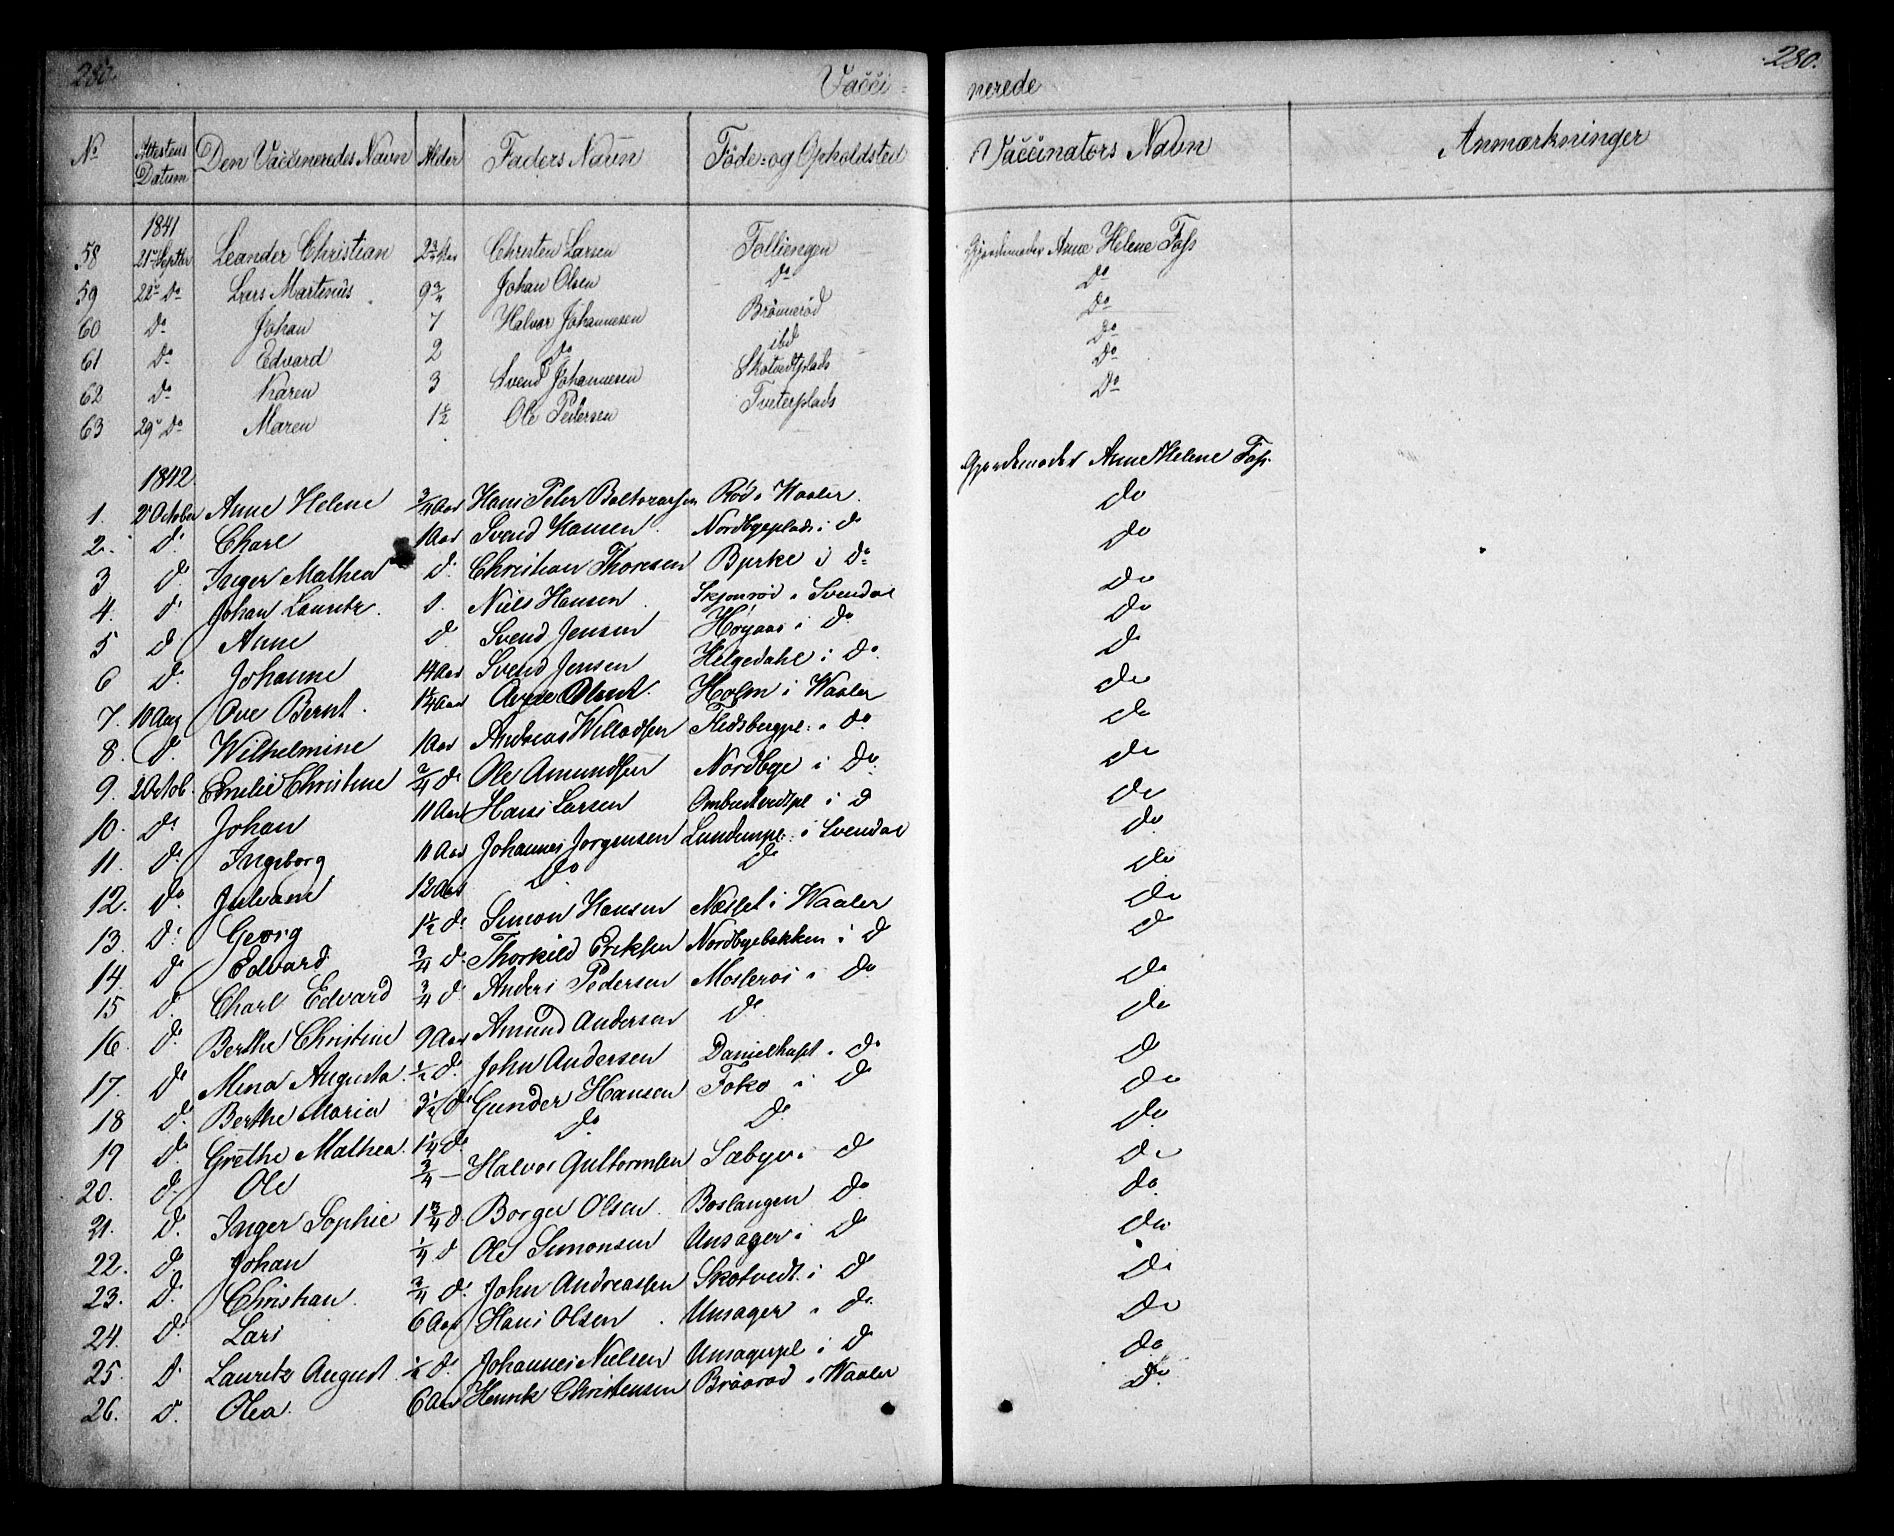 280. Vacci= nerede 280.
No Attestens Datum Den Vaccineredes Navn Alder Faders Navn Føde= og Opholdsted Vaccinators Navn Anmærkninger
1841
58 21de Septbr Leander Christian 2 3/4 Aar Christen Larsen Folliengen Gjordemoder Anne Helene Foss
59 22de Do Lars Martinius 9 3/4 Johan Olsen Do Do
60 Do Johan 7 Halvor Johannesen Brønnerød Do
61 Do Edvard 2 Do ibd Do
62 Do Karen 3 Svend Johannesen Skotvedtplads Do
63 29de Do Maren 1 1/2 Ole Pedersen Tveterplads Do
1842 Gjordemoder Anne Helene Foss
1. 2 October Anne Helene 3/4 Aar Hans Peter Baltzarsen Rød i Waaler. do
2. Do Charl 1 Aar Svend Hansen Nordbyeplads i do do
3 Do Inger Mathea Do Christian Thoresen Bjerke i Do do
4. Do Johan Lauritz. Do Niels Hansen Skjonrød i Svendal do
5 Do Anne Do Svend Jensen Høyaas i Do do
6 Do Johanne 14 Aar Svend Jensen Helgedahl i Do. do
7. 10 Aug Ove Bernt. 1 1/4 Aar Holm i Waaler do
8. Do Wilhelmine 1 Aar Andreas Willadsen Flesbergpl. i do do
9. 2 Octob. Emilie Christine 3/4 do Ole Amundsen Nordbye i Do do
10. Do Johan 11 Aar Hans Larsen i D do
11. Do Ingeborg 11 Aar Johannes Jorgensen i Svendal do
12. Do Juliane 12 Aar Do Do do
13. Do Georg 1 1/2 do Simon Hansen Næsset i Waaler do
14. Do Edvard 3/4 Do Thorkild Eriksen Nordbyebakken i D do
15 Do Charl Edvard 3/4 do Anders Pedersen i Do do
16. Do Berthe Christine 9 Aar Amund Andersen Do do
17. Do Mina Augusta. 1/2 Do John Andersen i Do do
18 Do Berthe Maria 3 1/2 Do Gunder Hansen Foko i D do
19 Do Grethe Mathea. 1 1/4 Do Do Do do
20. Do Ole 3/4 — Halvor Guttormsen Sæbye i do do
21. Do Inger Sophie 1 3/4 do Borger Olsen. Boslangen Do do
22. Do Johan 1/4 do Ole Simonsen Unsager i D do
23. Do Christian. 3/4 Do John Andreassen Skotvedt i D do
24. Do Lars 6 Aar Hans Olsen Unsager i do do
25. Do Lauritz August. Do Johannes Nielsen Unsagerpl i D do
26. Do Olea. 6 Aar Henrik Christensen i Waaler Do